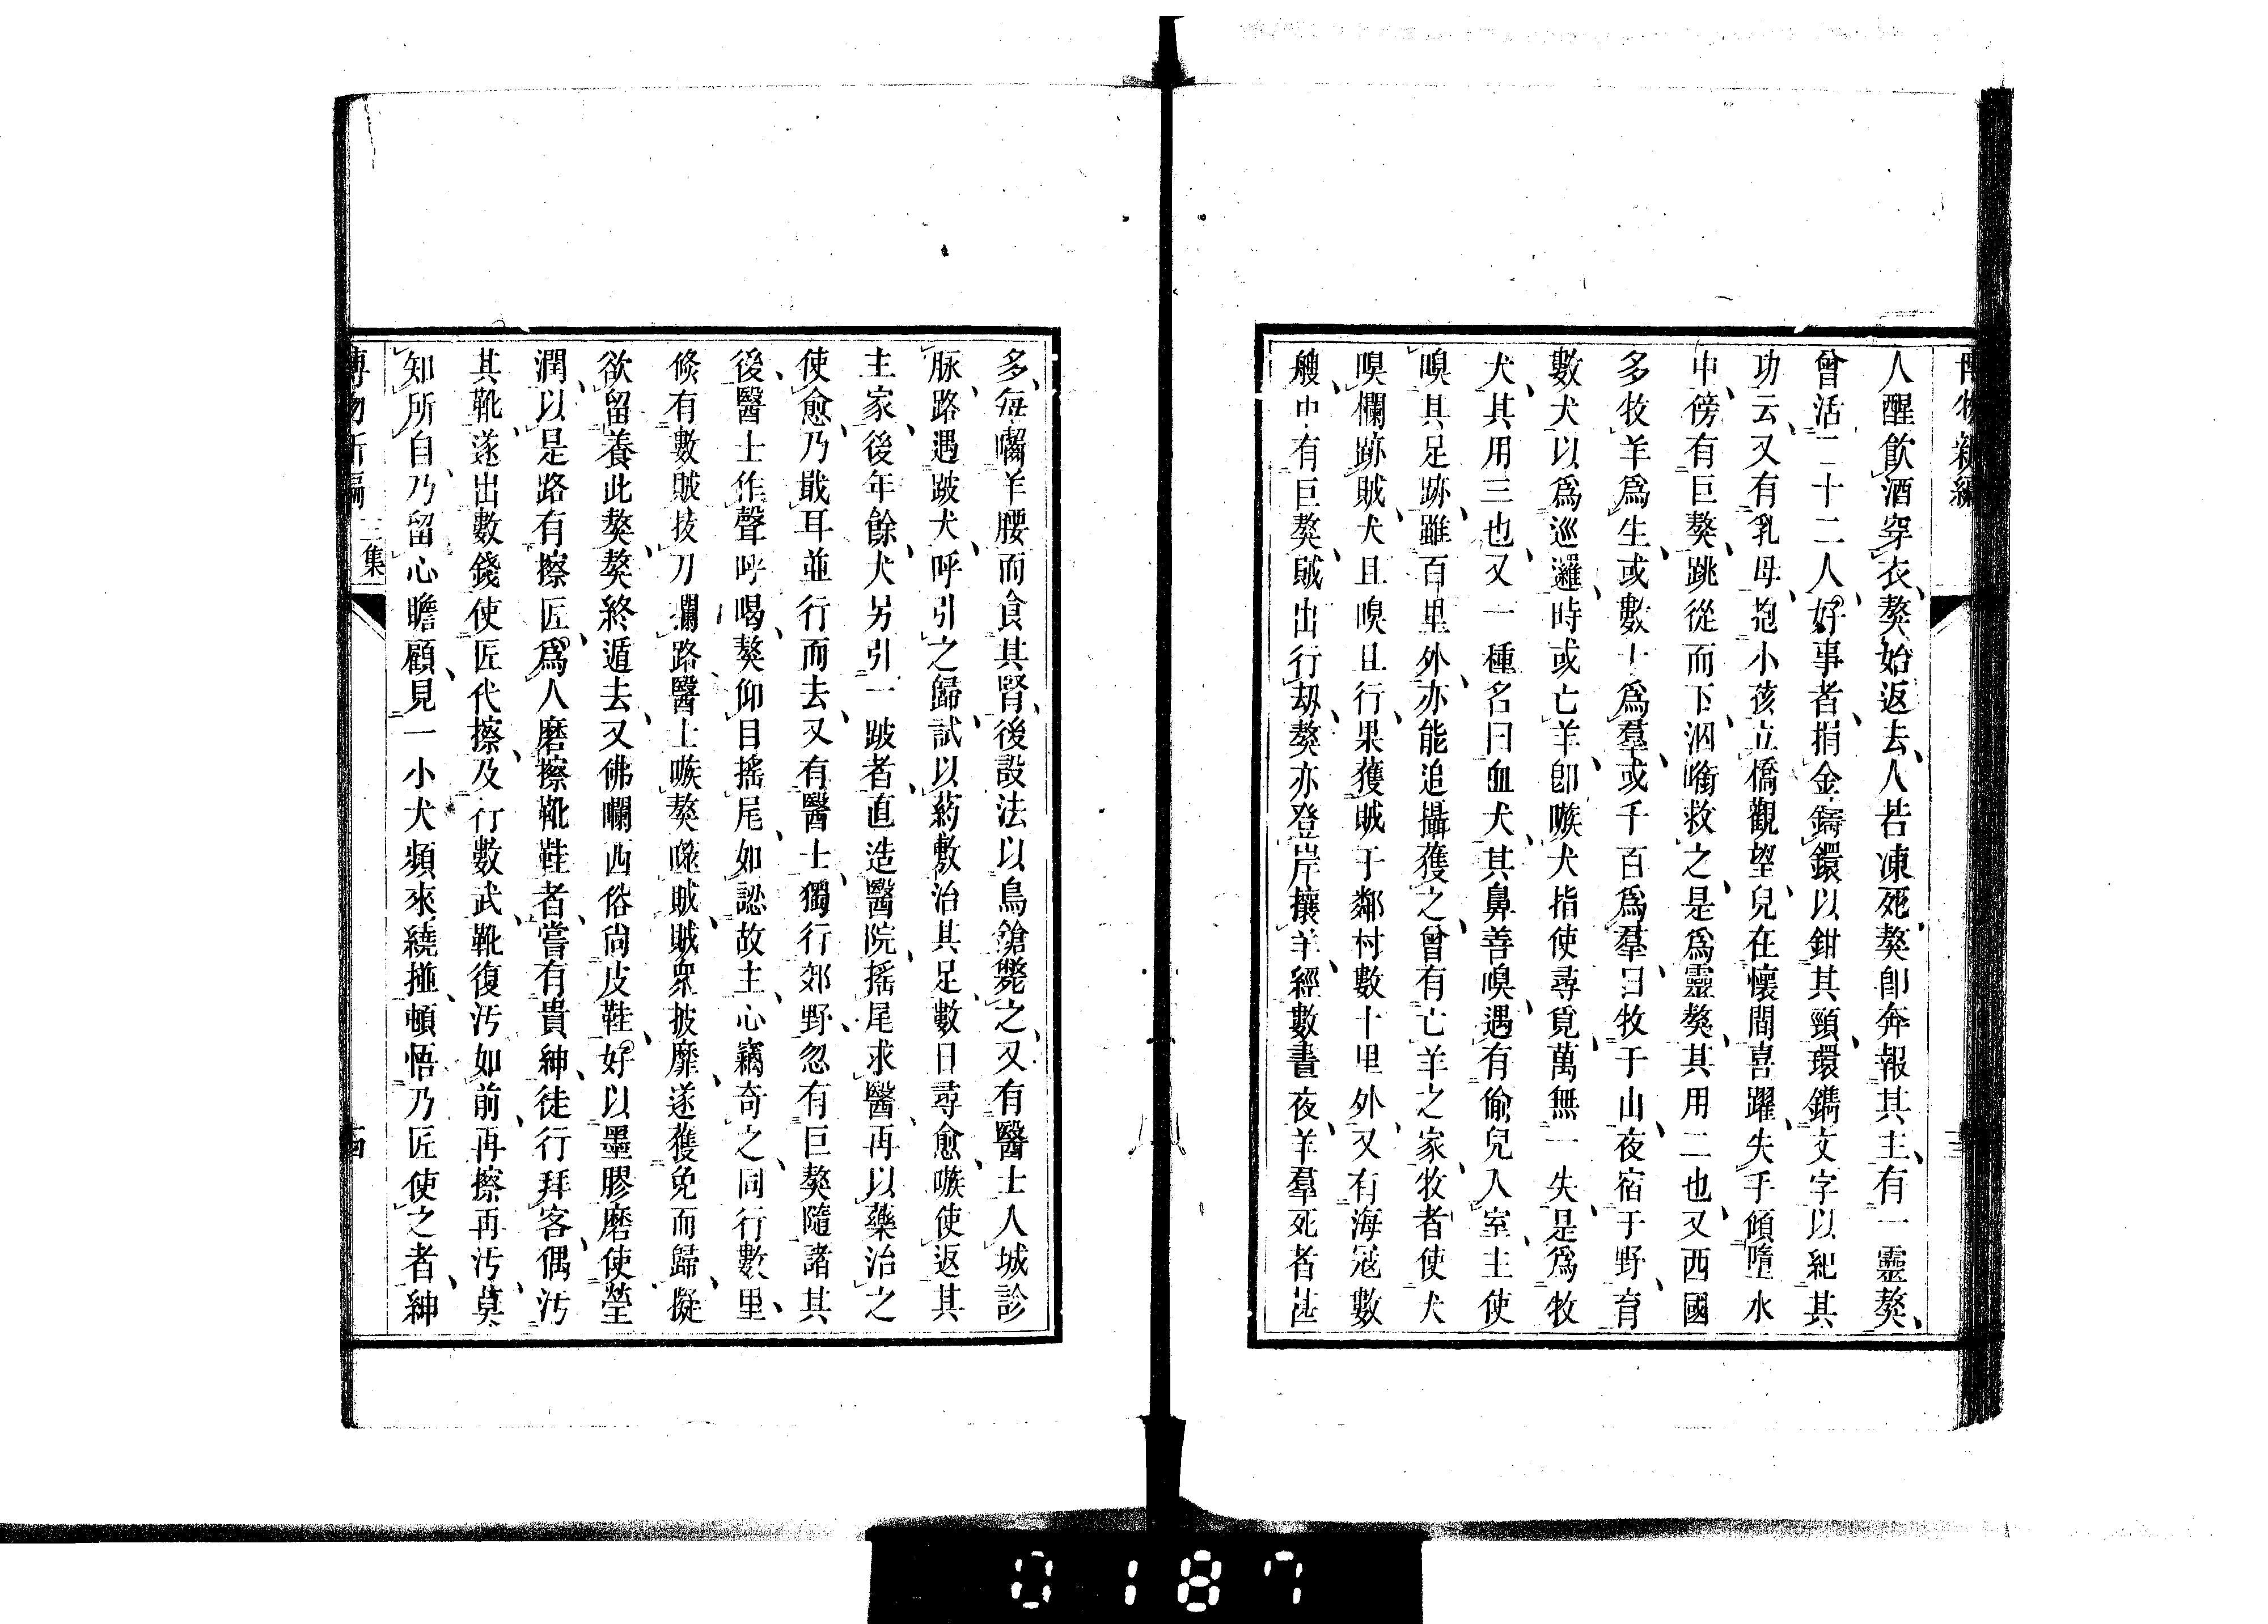 博物新編
人醒飮酒穿衣、獒始返去、人若凍死、獒卽奔報其主、有一靈獒、
曾活二十二人、好事者、捐金鑄鐶以鉗其頸、環鐫文字以紀其
功云、又有乳母、抱小孩立橋觀望、兒在懷間喜躍、失手傾墮水
中、傍有巨獒、跳從而下、泅啣救之、是爲靈獒、其用二也、又西國
多牧羊爲生、或數十爲羣、或千百爲羣、日牧于山、夜宿于野、育
數犬以爲巡邏、時或亡羊、卽嗾犬指使尋覓、萬無一失、是爲牧
犬、其用三也、又一種名曰血犬、其鼻善嗅、遇有偷兒入室、主使
嗅其足跡、雖百里外、亦能追攝獲之、曾有亡羊之家、牧者使犬
嗅欄跡賊、犬且嗅且行、果獲賊于鄰村數十里外、又有海寇數
艘、中有巨獒、賊出行刧、獒亦登岸攘羊、經數晝夜、羊羣死者甚
多、每囓羊腰而食其腎、後設法以鳥鎗斃之、又有醫士入城診
脉、路遇跛犬、呼引之歸、試以葯敷治其足、數日尋愈、嗾使返其
主家、後年餘、犬另引一跛者、直造醫院、搖尾求醫、再以藥治之
使愈、乃戢耳並行而去、又有醫士、獨行郊野、忽有巨獒隨諸其
後、醫士作聲呼喝、獒仰目搖尾、如認故主、心竊奇之、同行數里、
倏有數賊拔刀攔路、醫士嗾獒噬賊、賊衆披靡、遂獲免而歸、擬
欲留養此獒、獒終遁去、又佛囒西俗尙皮鞋、好以墨膠磨使瑩
潤、以是路有擦匠、爲人磨擦靴鞋者、嘗有貴紳、徒行拜客、偶汚
其靴、遂出數錢使匠代擦、及行數武、靴復汚如前、再擦再汚、莫
知所自、乃留心瞻顧、見一小犬頻來繞揰、頓悟乃匠使之者、紳
博物新編 三集